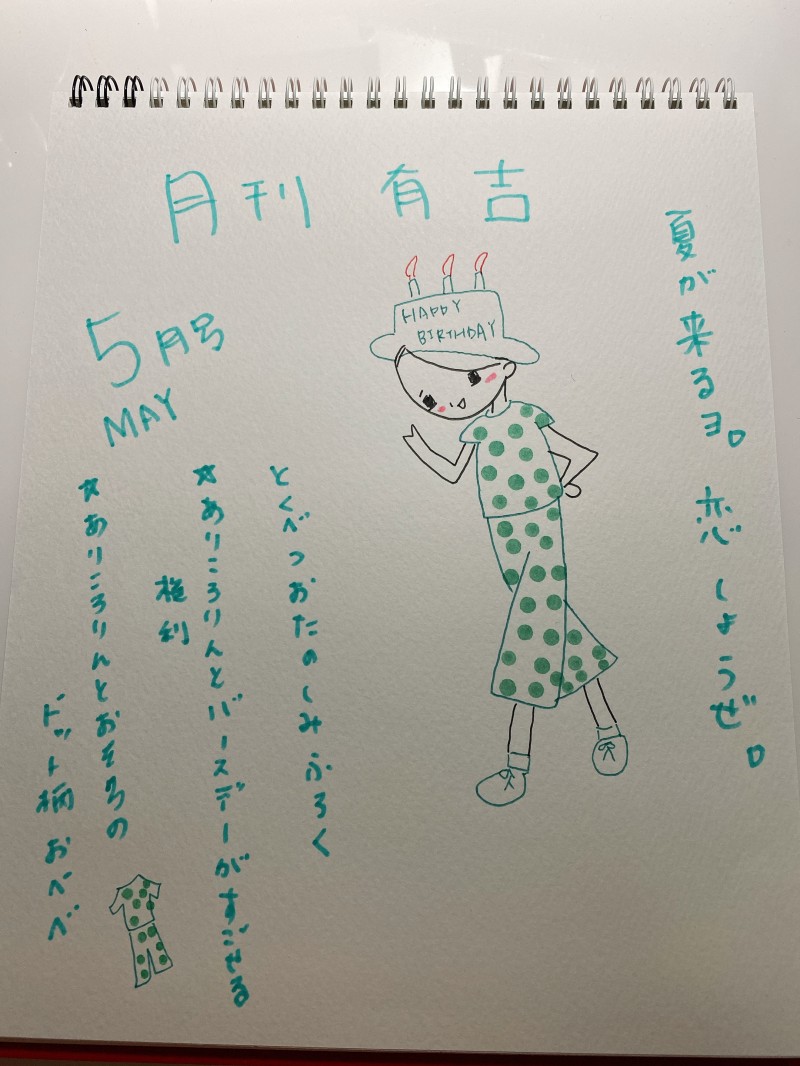 月刊 有吉
夏が来るヨ。恋しようぜ。
5月号
MAY
HAPPY
BIRTHDAY
とくべつおたのしみふろく
☆ありころりんとバースデーがすごせる
権利
☆ありころりんとおそろの
ドット柄おべべ